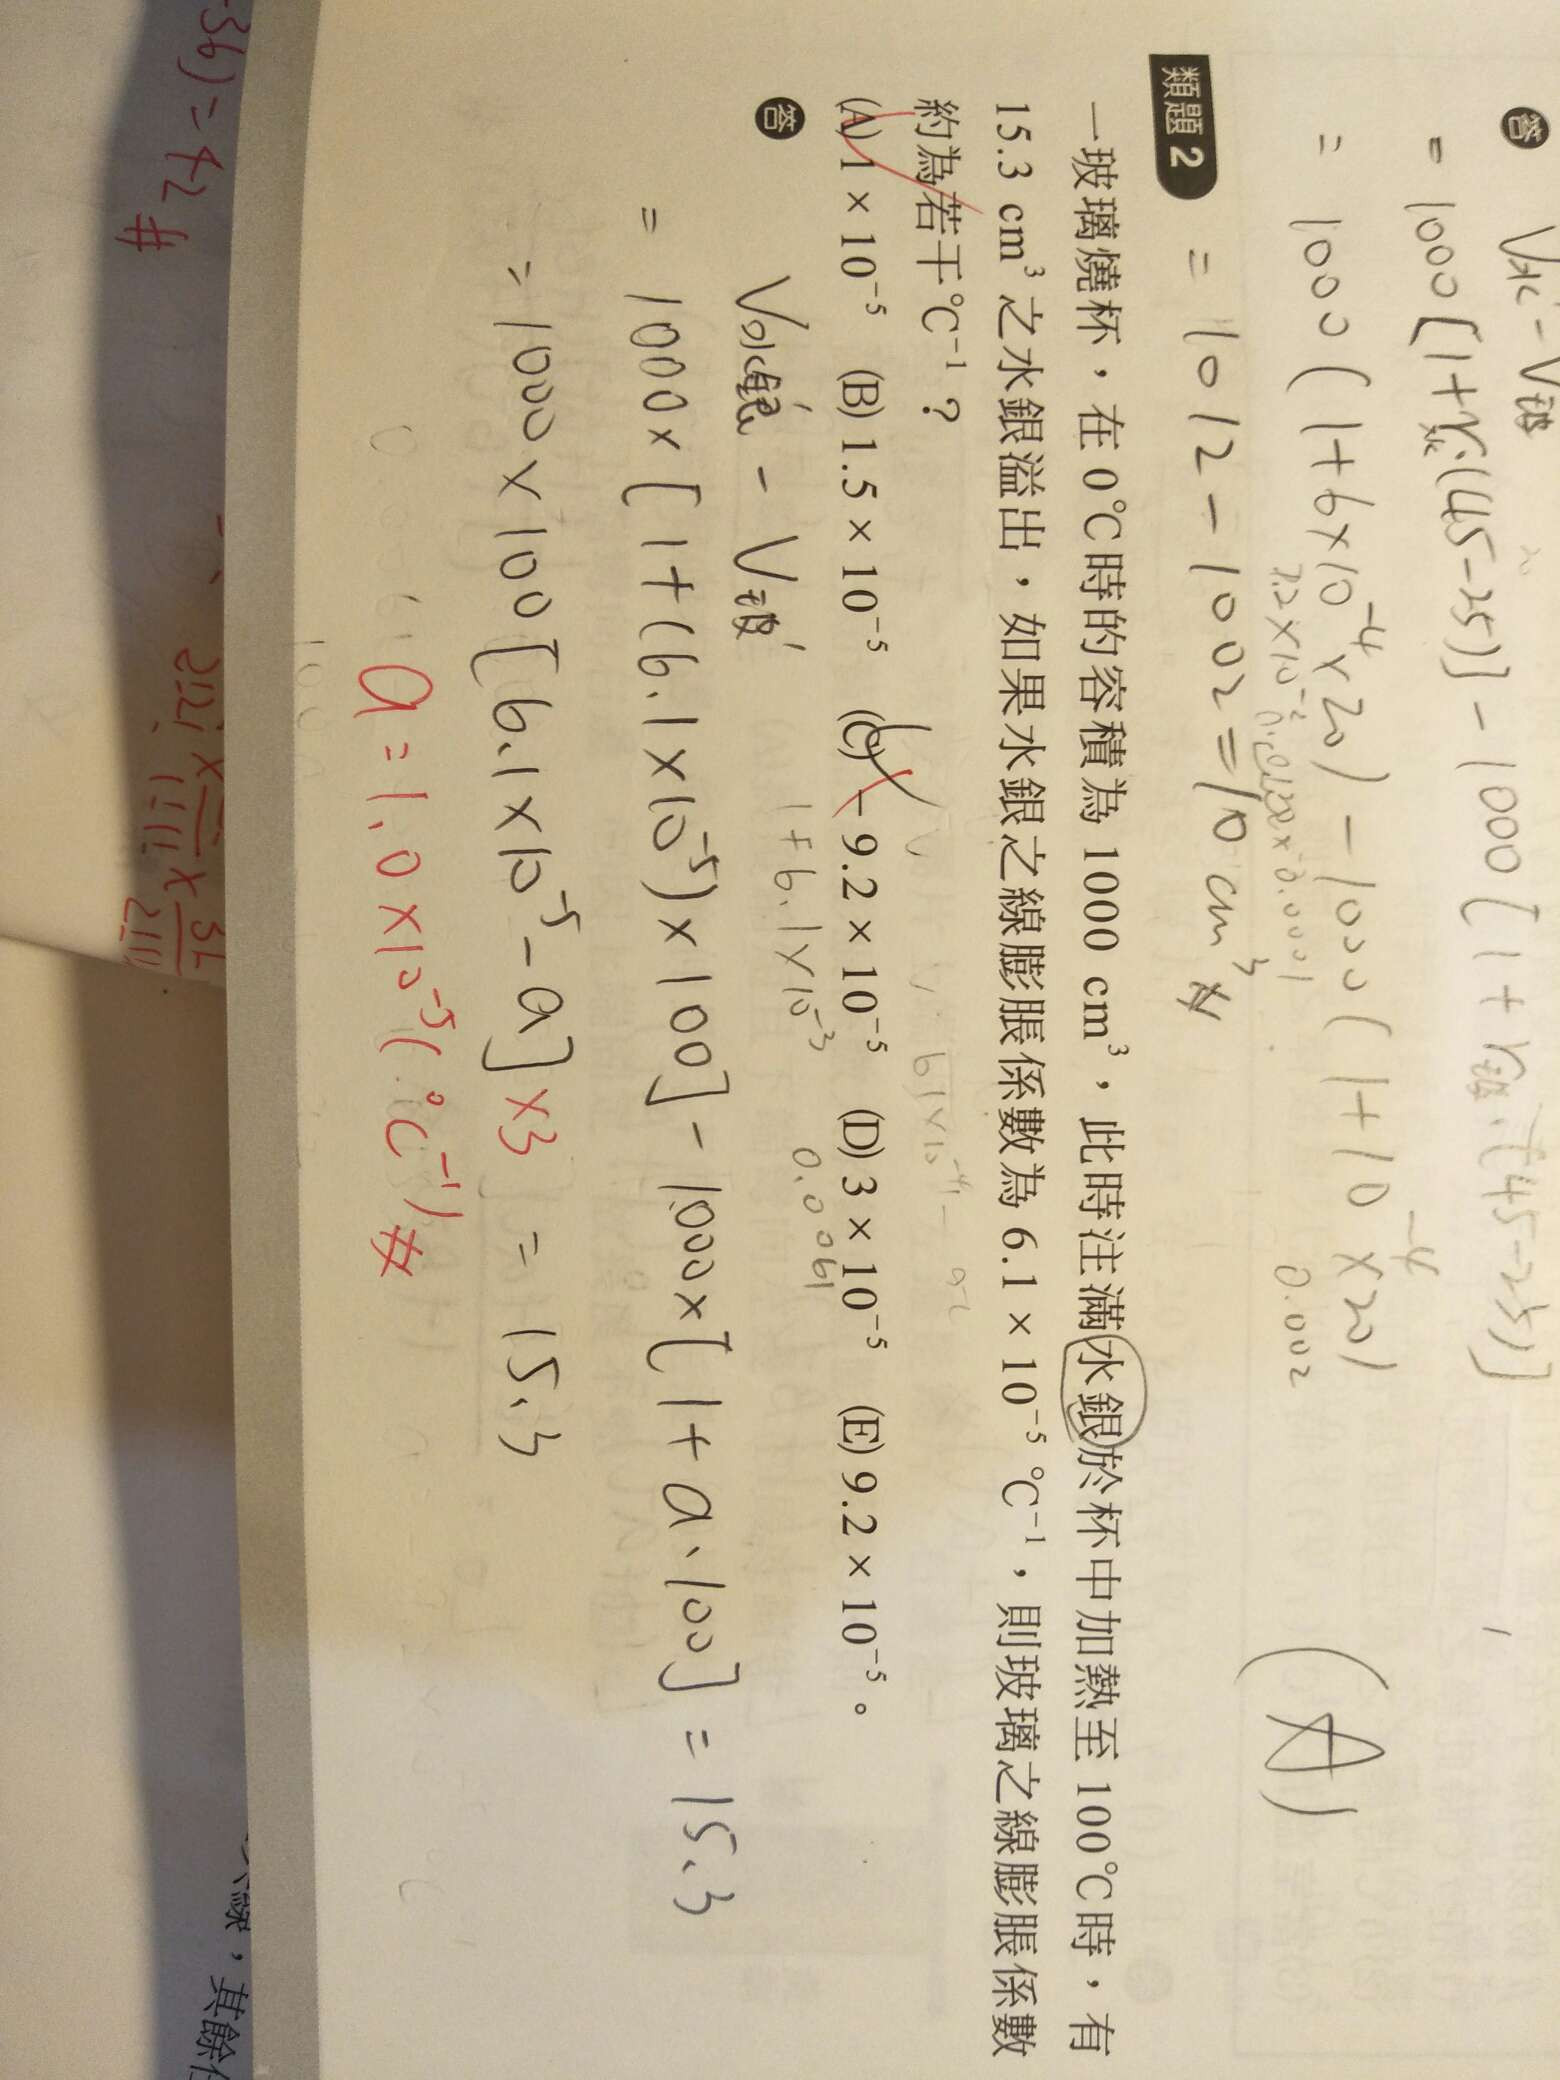 答 V水 - V玻
= 1000[1+γ水·(45-25)] - 1000[1+γ玻·(45-25)]
= 1000(1+6×10⁻⁴×20) - 1000(1+10⁻⁴×20)
0.002
= 1012-1002=10 cm³ #
(A)
類題2
一玻璃燒杯,在0℃時的容積為1000 cm³,此時注滿水銀於杯中加熱至100℃時,有
15.3 cm³之水銀溢出,如果水銀之線膨脹係數為6.1 × 10⁻⁵ ℃⁻¹,則玻璃之線膨脹係數
約為若干℃⁻¹?
(A) 1 × 10⁻⁵ (B) 1.5 × 10⁻⁵ (C) - 9.2 × 10⁻⁵ (D) 3 × 10⁻⁵ (E) 9.2 × 10⁻⁵。
答
1+6.1×10⁻³ 0.0061
V水銀' - V玻'
= 1000×[1+(6.1×10⁻⁵)×100] - 1000×[1+a·100] = 15.3
= 1000×100[6.1×10⁻⁵-a]×3 = 15.3
a=1.0×10⁻⁵(℃⁻¹)#
-36)=42
#
,其餘